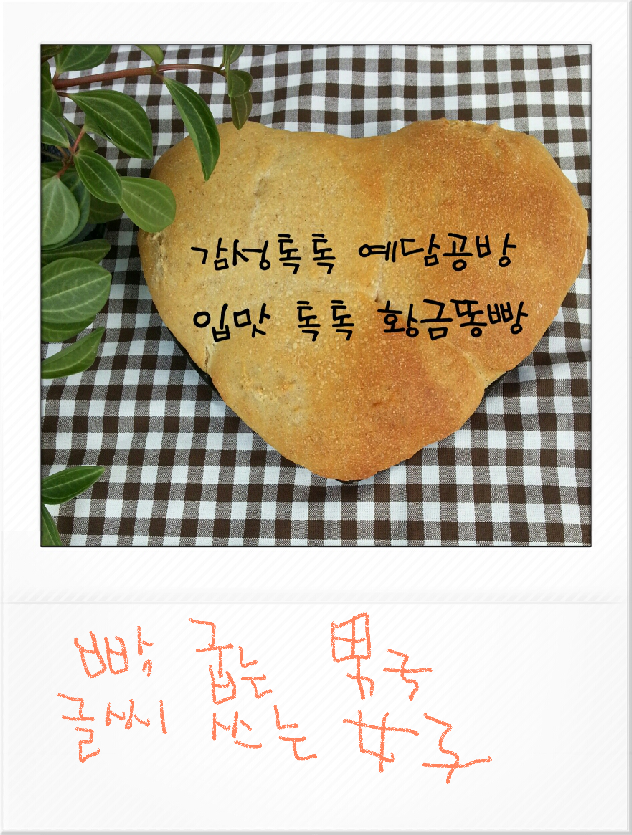 감성톡톡 예담공방
입맛 톡톡 황금똥빵
빵 굽는 男子
글씨 쓰는 女子